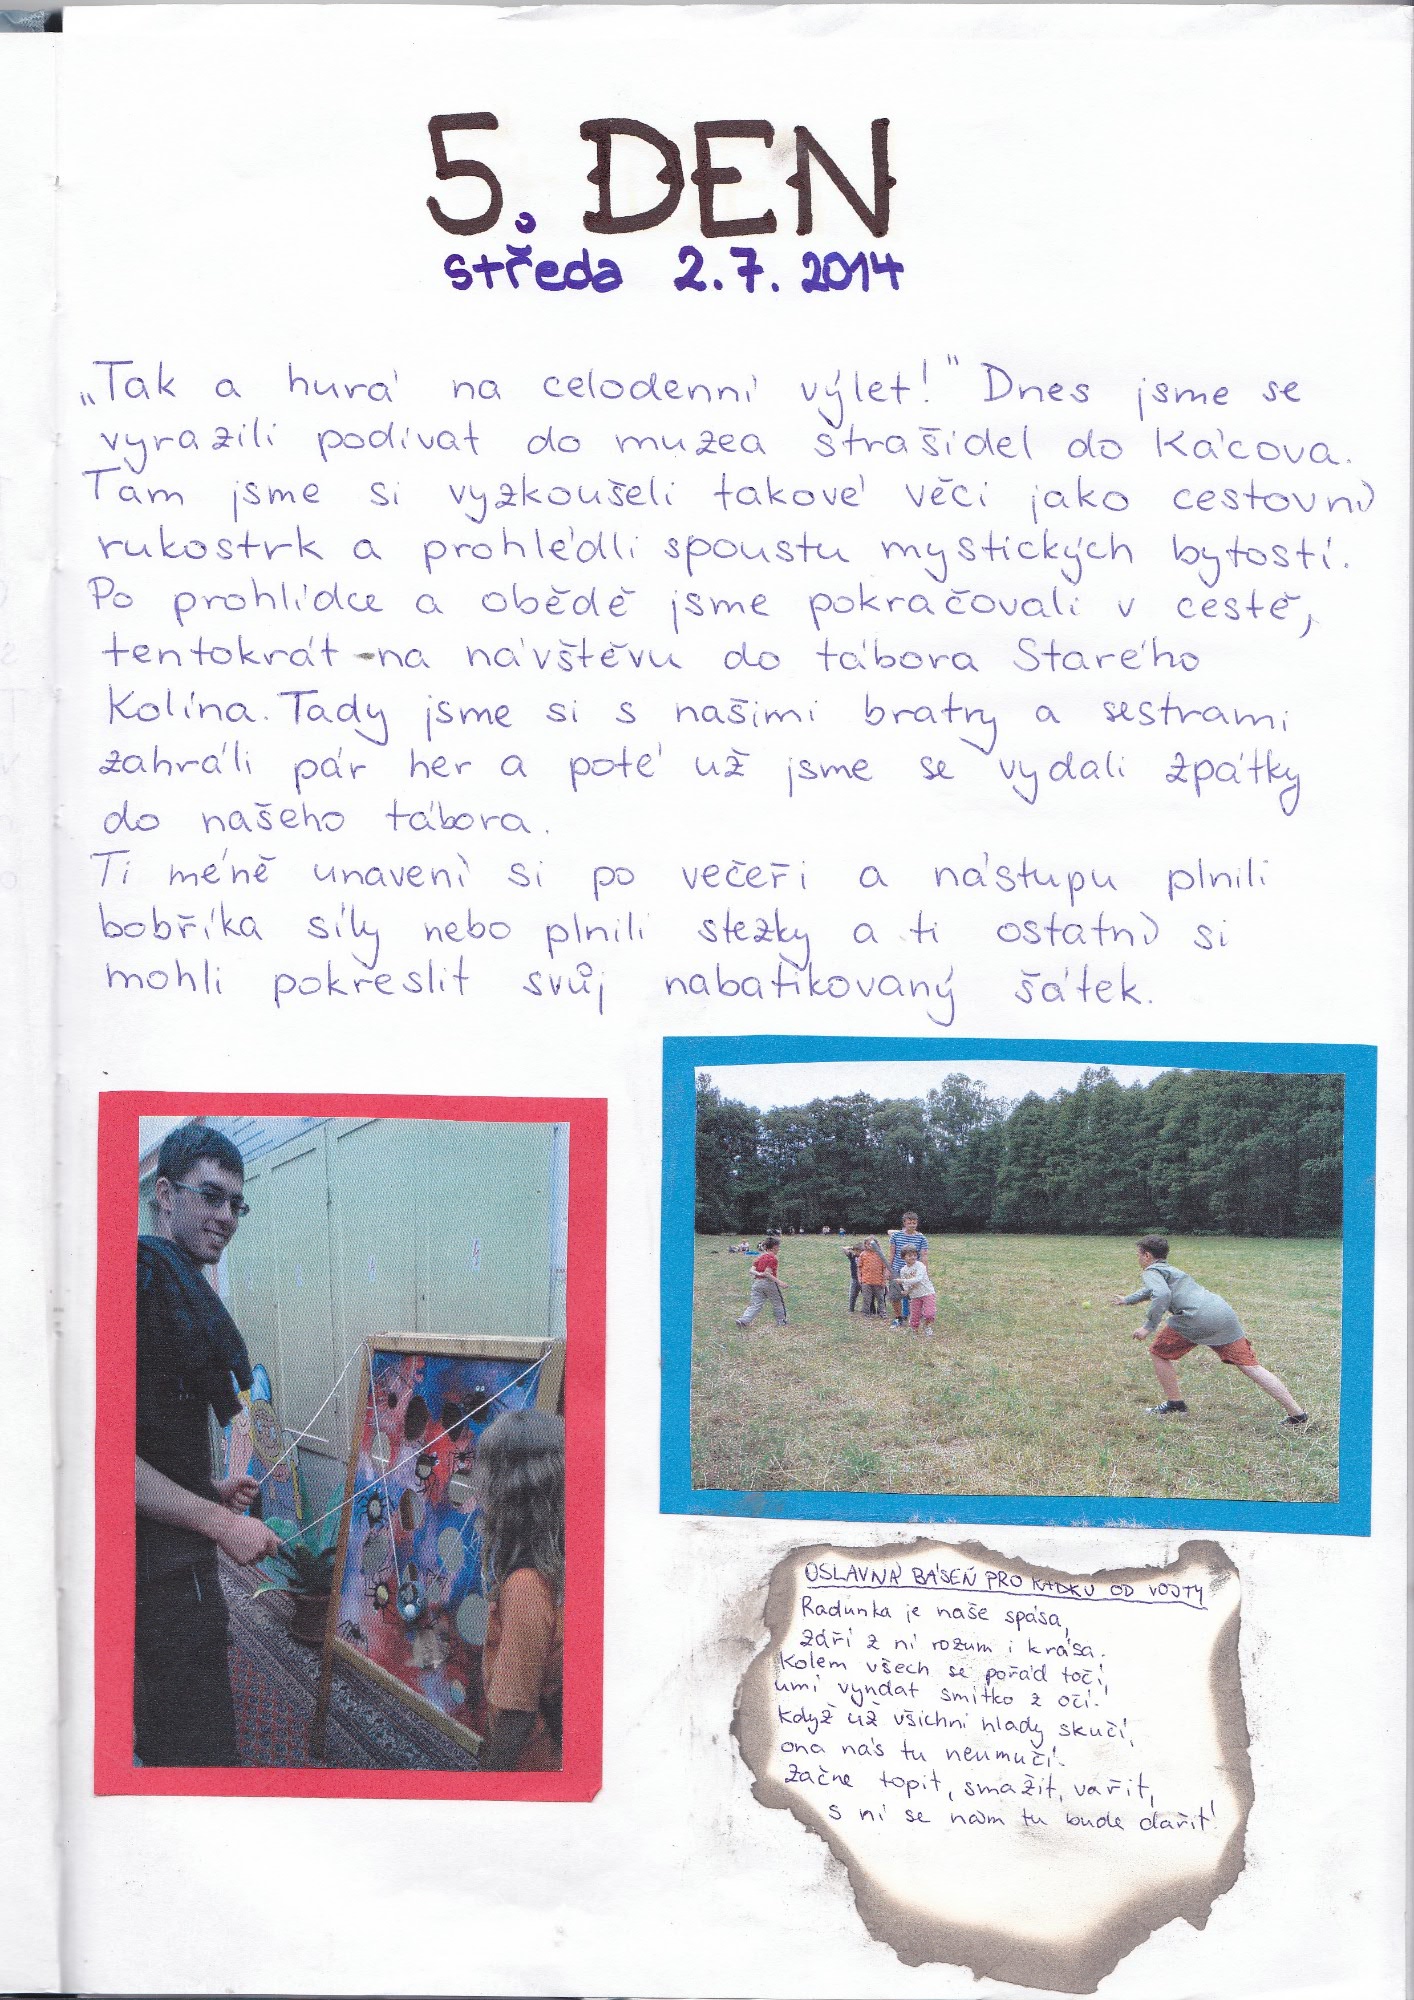 5. DEN
středa 2.7.2014
„Tak a hurá na celodenní výlet!" Dnes jsme se
vyrazili podívat do muzea strašidel do Kácova.
Tam jsme si vyzkoušeli takové věci jako cestovní
rukostrk a prohlédli spoustu mystických bytostí.
Po prohlídce a obědě jsme pokračovali v cestě,
tentokrát na návštěvu do tábora Starého
Kolína. Tady jsme si s našimi bratry a sestrami
zahráli pár her a poté už jsme se vydali zpátky
do našeho tábora.
Ti méně unavení si po večeři a nástupu plnili
bobříka síly nebo plnili stezky a ti ostatní si
mohli pokreslit svůj nabatikovaný šátek.
OSLAVNÁ BÁSEŇ PRO RADKU OD VOJTY
Radunka je naše spása,
září z ní rozum i krása.
Kolem všech se pořád točí,
umí vyndat smítko z očí.
Když už všichni hlady skučí,
ona nás tu neumučí.
Začne topit, smažit, vařit,
s ní se nám tu bude dařit!